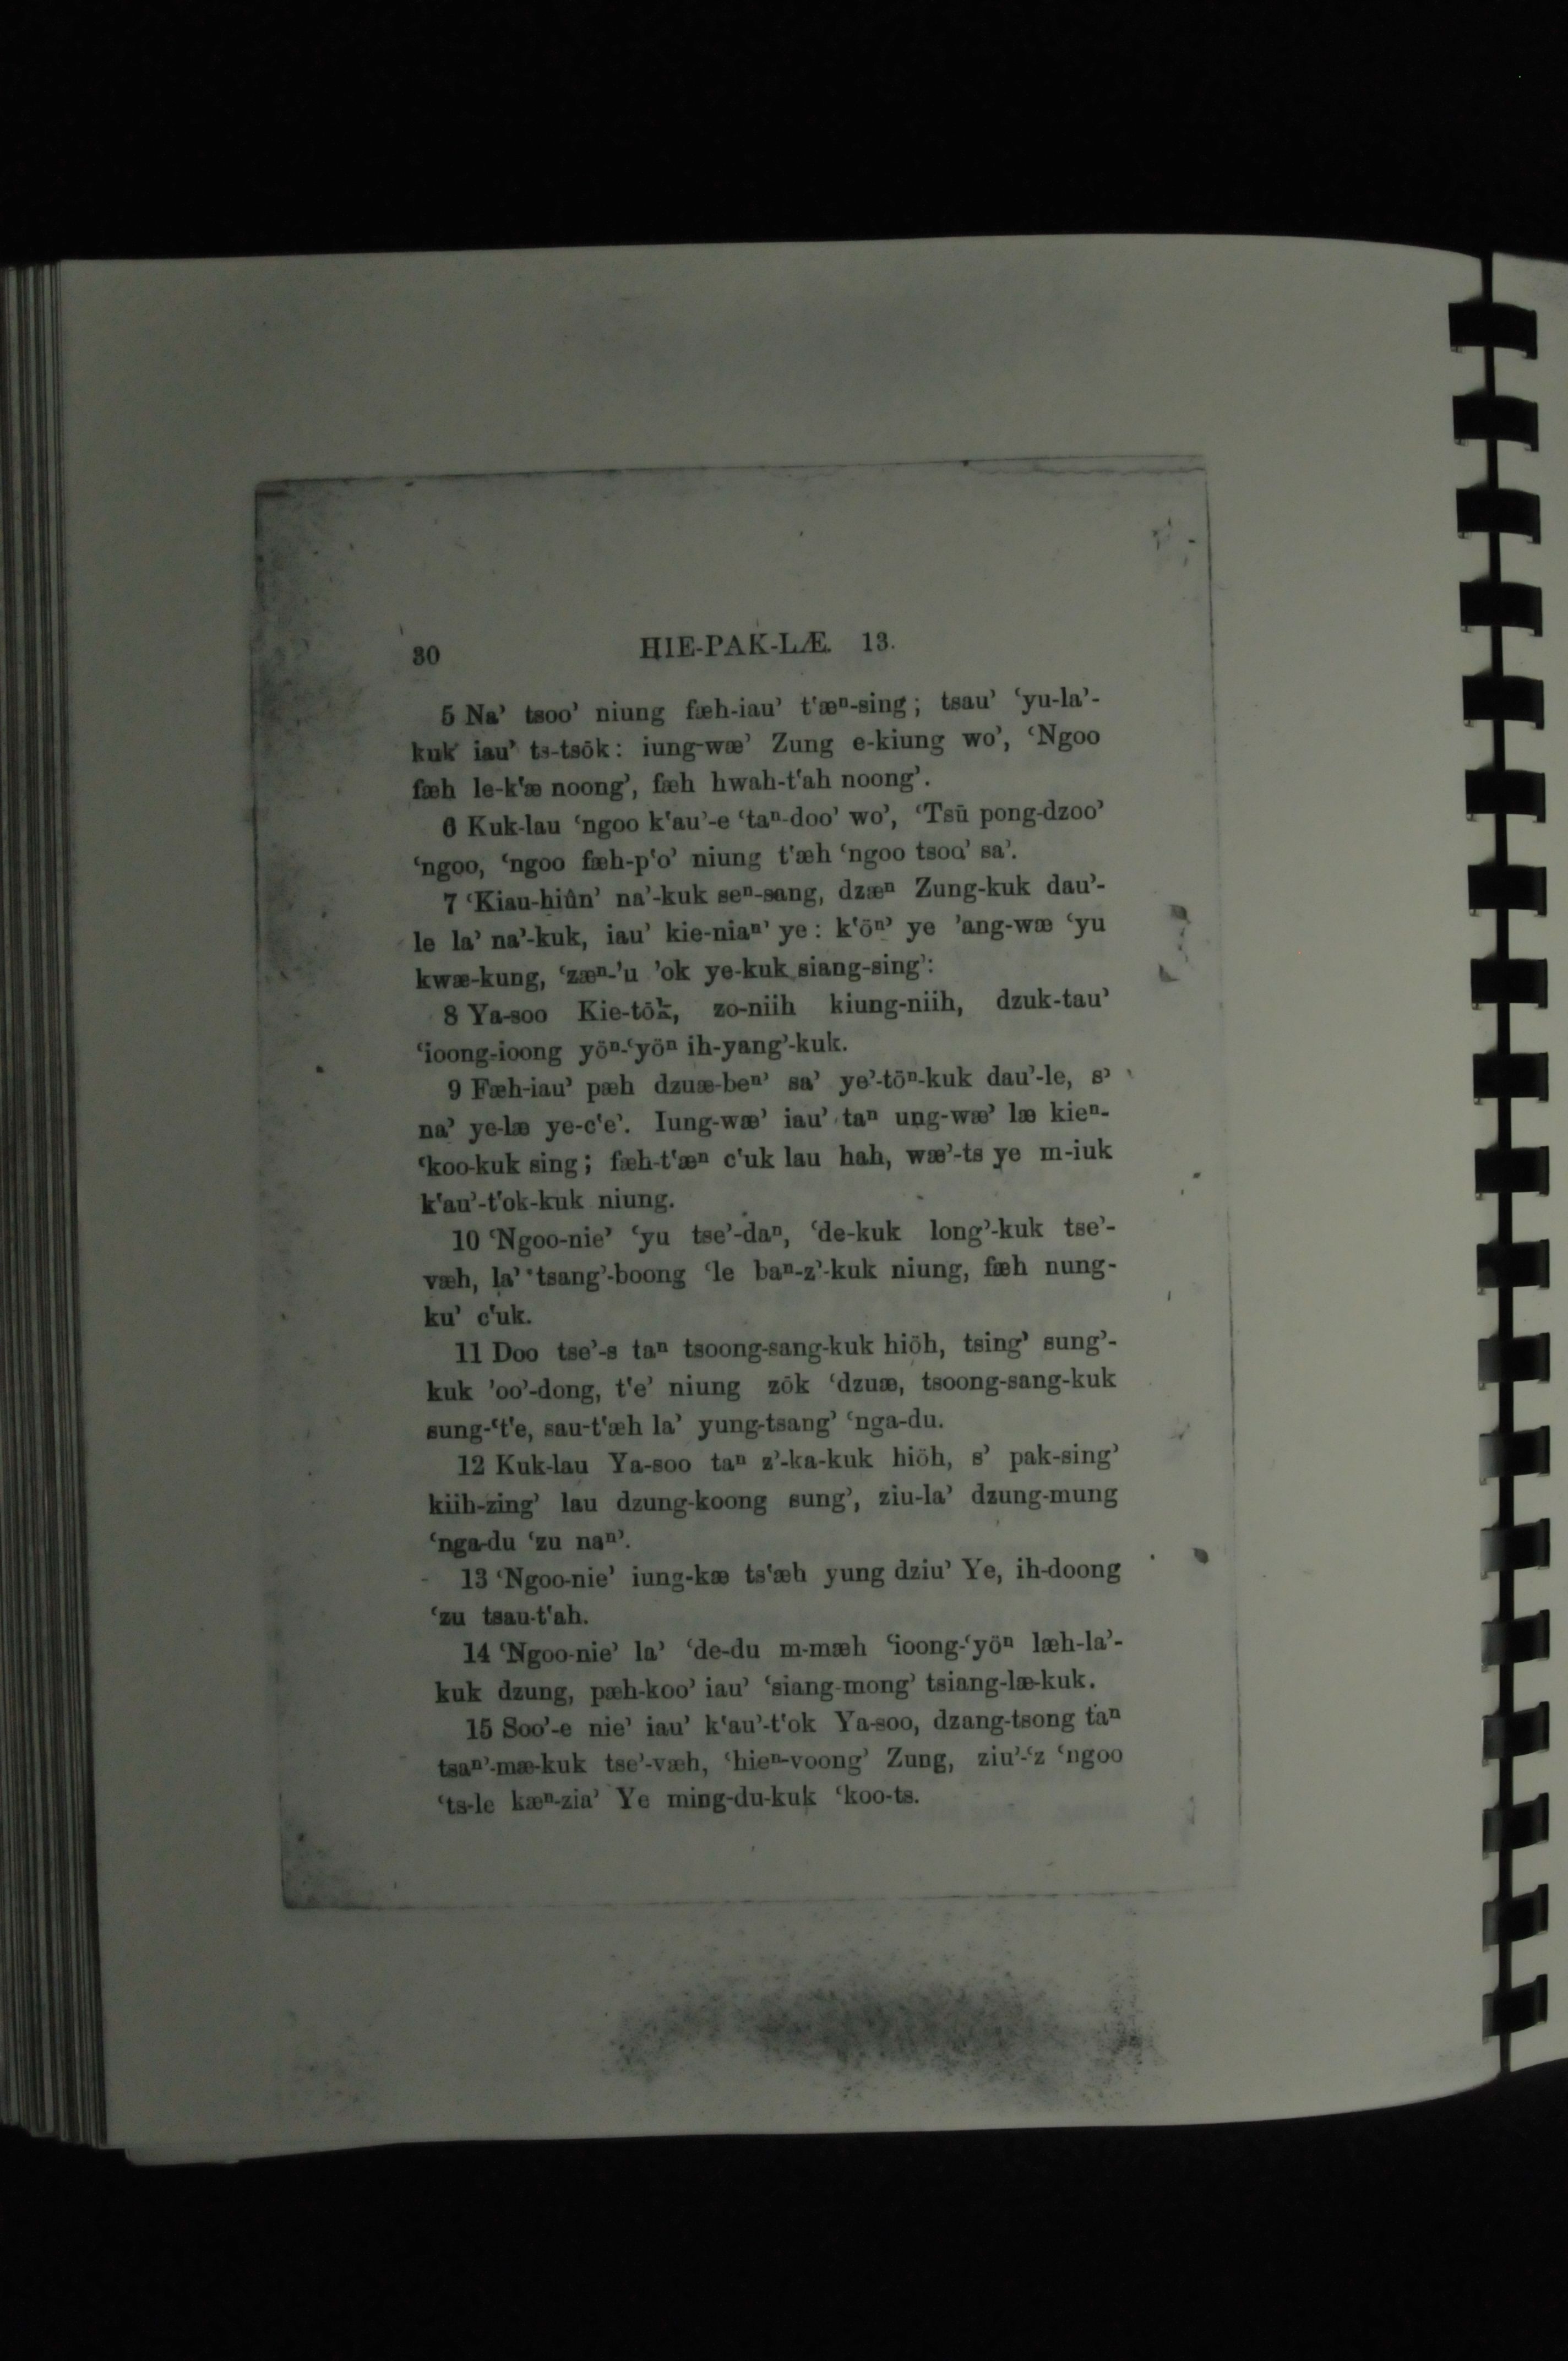 30 HIE-PAK-LÆ. 13.
5 Na’ tsoo’ niung fæh-iau’ t‘æⁿ-sing; tsau’ ‘yu-la’-
kuk iau’ ts-tsōk: iung-wæ’ Zung e-kiung wo’, ‘Ngoo
fæh le-k‘æ noong’, fæh hwah-t‘ah noong’.
6 Kuk-lau ‘ngoo k‘au’-e ‘taⁿ-doo’ wo’, ‘Tsū pong-dzoo’
‘ngoo, ‘ngoo fæh-p‘o’ niung t‘æh ‘ngoo tsoo’ sa’.
7 ‘Kiau-hiûn’ na’-kuk seⁿ-sang, dzæⁿ Zung-kuk dau’-
le la’ na’-kuk, iau’ kie-niaⁿ’ ye: k‘öⁿ’ ye ’ang-wæ ‘yu
kwæ-kung, ‘zæⁿ-’u ’ok ye-kuk siang-sing’:
8 Ya-soo Kie-tōk, zo-niih kiung-niih, dzuk-tau’
‘ioong-ioong yöⁿ-‘yöⁿ ih-yang’-kuk.
9 Fæh-iau’ pæh dzuæ-beⁿ’ sa’ ye’-töⁿ-kuk dau’-le, s’
na’ ye-læ ye-c‘e’. Iung-wæ’ iau’ taⁿ ung-wæ’ læ kieⁿ-
‘koo-kuk sing; fæh-t‘æⁿ c‘uk lau hah, wæ’-ts ye m-iuk
k‘au’-t‘ok-kuk niung.
10 ‘Ngoo-nie’ ‘yu tse’-daⁿ, ‘de-kuk long’-kuk tse’-
væh, la’ tsang’-boong ‘le baⁿ-z’-kuk niung, fæh nung-
ku’ c‘uk.
11 Doo tse’-s taⁿ tsoong-sang-kuk hiöh, tsing’ sung’-
kuk ’oo’-dong, t‘e’ niung zōk ‘dzuæ, tsoong-sang-kuk
sung-‘t‘e, sau-t‘æh la’ yung-tsang’ ‘nga-du.
12 Kuk-lau Ya-soo taⁿ z’-ka-kuk hiöh, s’ pak-sing’
kiih-zing’ lau dzung-koong sung’, ziu-la’ dzung-mung
‘nga-du ‘zu naⁿ’.
13 ‘Ngoo-nie’ iung-kæ ts‘æh yung dziu’ Ye, ih-doong
‘zu tsau-t‘ah.
14 ‘Ngoo-nie’ la’ ‘de-du m-mæh ‘ioong-‘yöⁿ læh-la’-
kuk dzung, pæh-koo’ iau’ ‘siang-mong’ tsiang-læ-kuk.
15 Soo’-e nie’ iau’ k‘au’-t‘ok Ya-soo, dzang-tsong taⁿ
tsaⁿ’-mæ-kuk tse’-væh, ‘hieⁿ-voong’ Zung, ziu’-‘z ‘ngoo
‘ts-le kæⁿ-zia’ Ye ming-du-kuk ‘koo-ts.